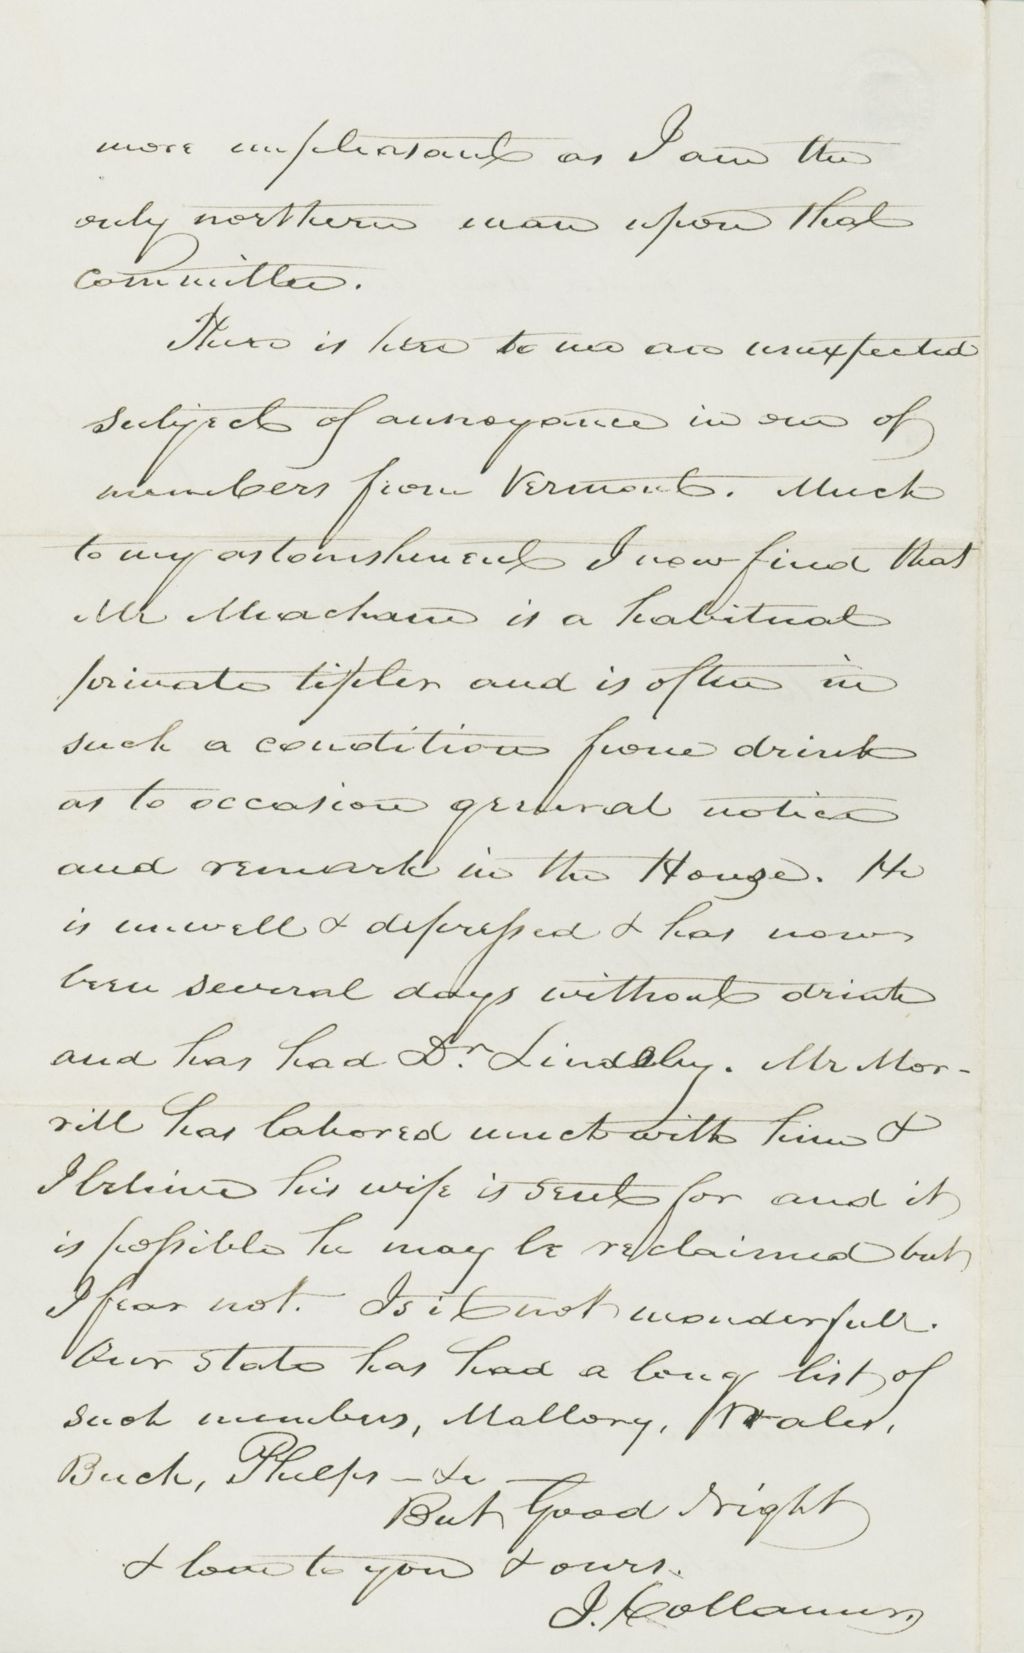 more unpleasant as I am the
only northern man upon that
committee.
There is here to me an unexpected
subject of annoyance in one of
members from Vermont. Much
to my astonishment I now find that
Mr Meacham is a habitual
private tipler and is often in
such a condition from drink
as to occasion general notice
and remark in the House. He
is unwell & depressed & has now
been several days without drink
and has had Dr. Lindsly. Mr Mor-
rill has labored much with him &
I believe his wife is sent for and it
is possible he may be reclaimed but
I fear not. Is it not wonderfull.
Our state has had a long list of
such members, Mallory, Wales,
Buck, Phelps - &c
But Good Night
& love to you & ours.
J. Collamer.